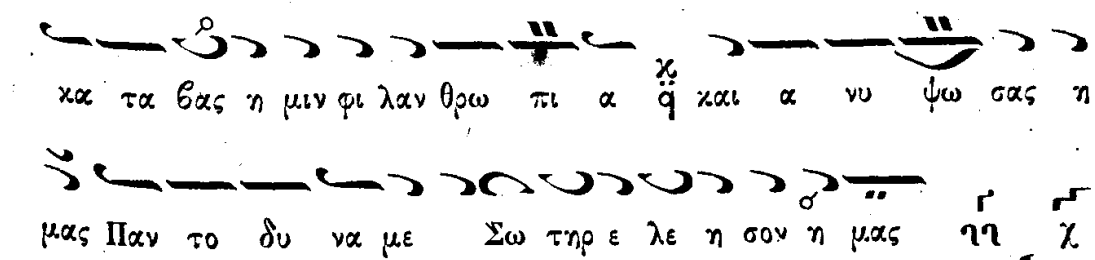 κα τα βας η μιν φι λαν θρω πι α χ̣ q̈ και α νυ ψω σας η
μας Παν το δυ να με Σω τηρ ε λε η σον η μας ηη χ